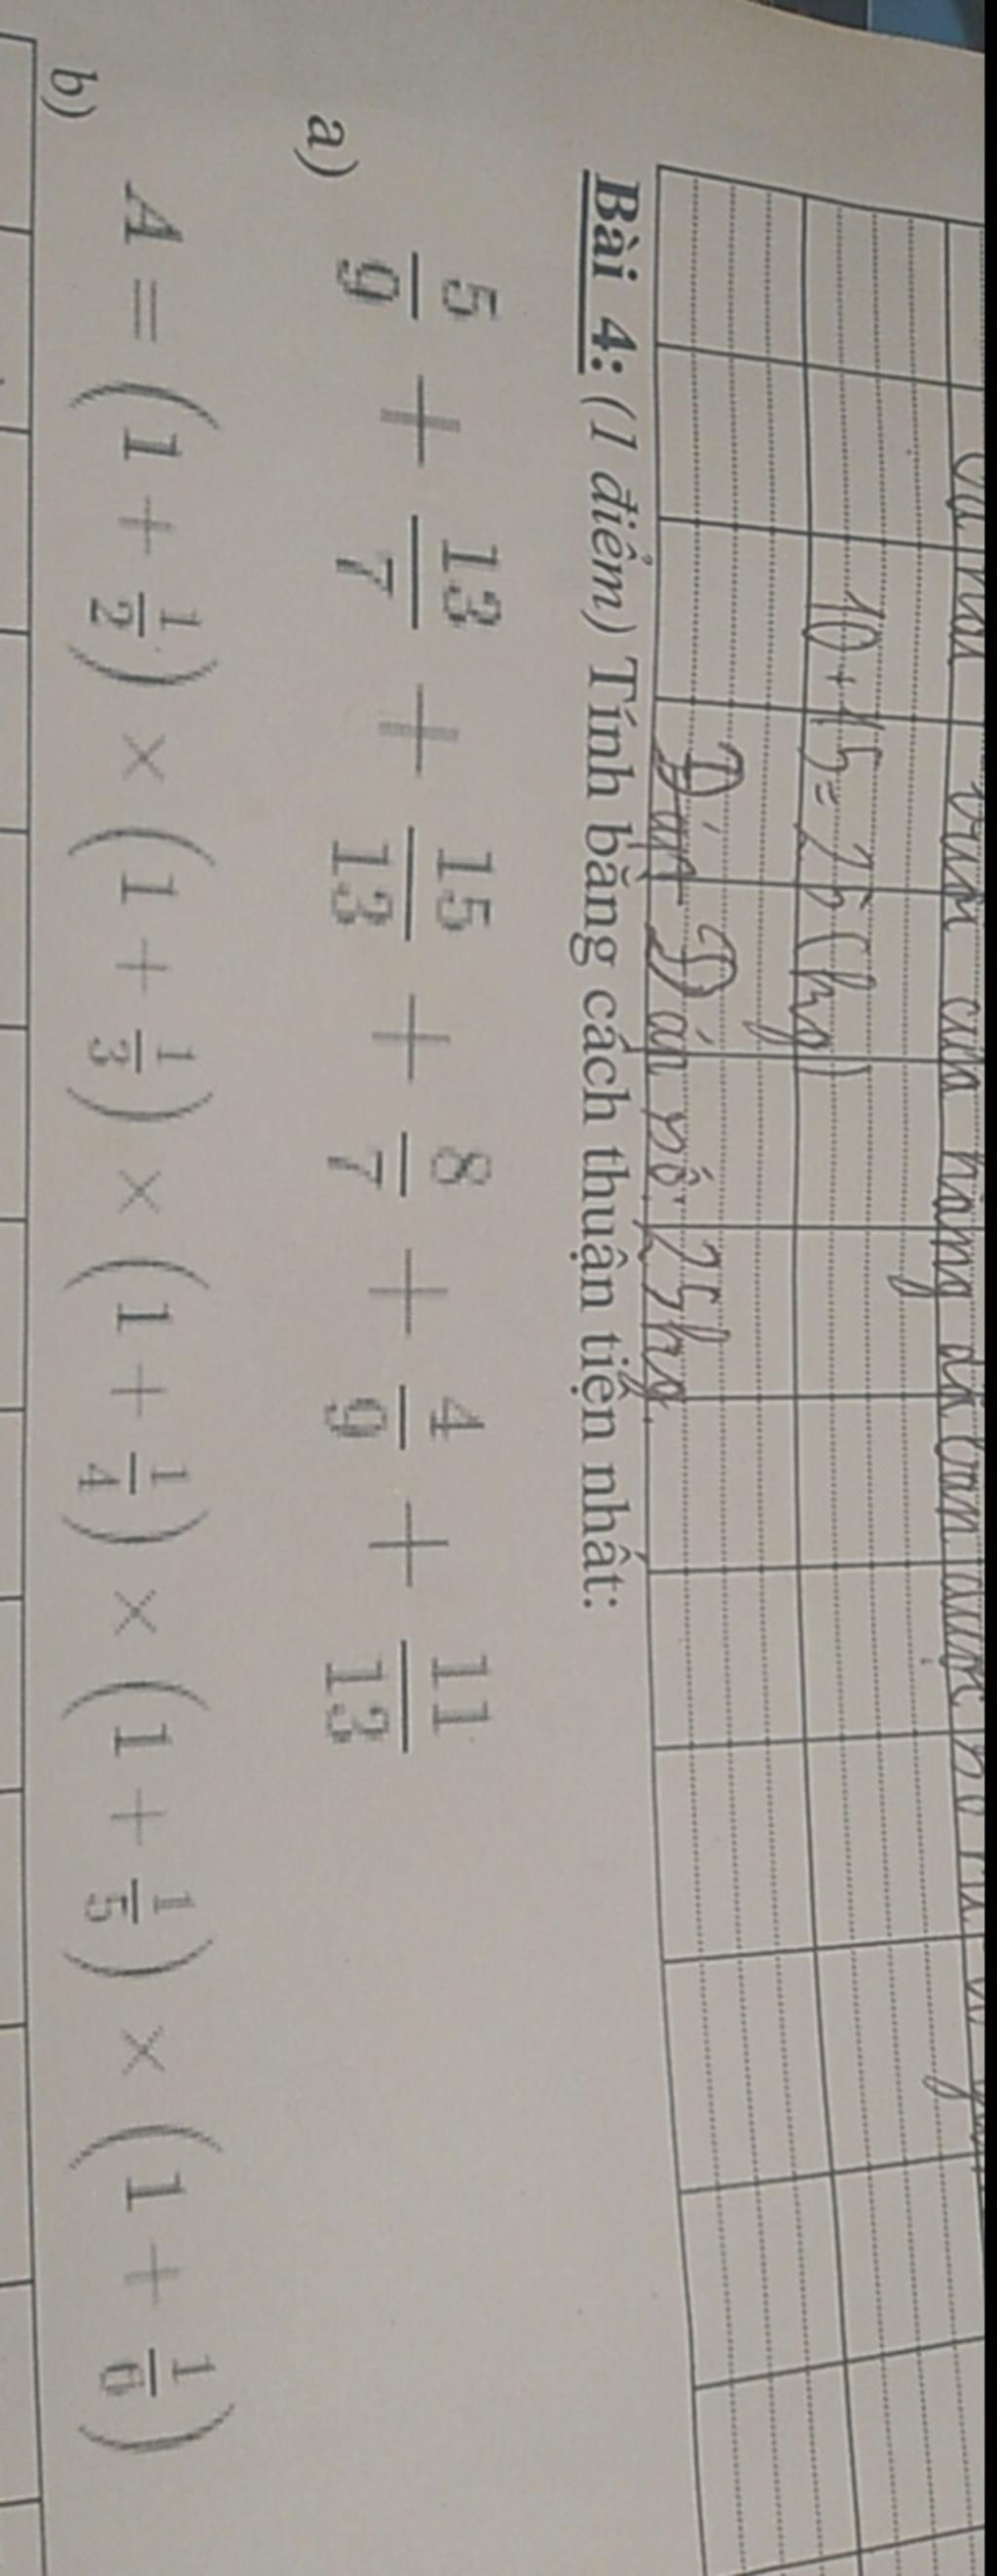 của hàng
10 + 15 = 25 (kg)
Đáp Đán số: 25kg.
Bài 4: (1 điểm) Tính bằng cách thuận tiện nhất:
a) 5/9 + 13/7 + 15/13 + 8/7 + 4/9 + 11/13
b) A = (1 + 1/2) × (1 + 1/3) × (1 + 1/4) × (1 + 1/5) × (1 + 1/6)